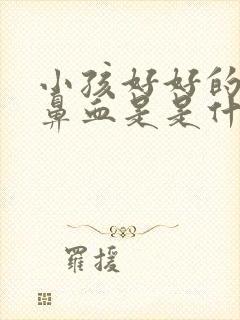 小孩好好的
鼻血是是什
羅援